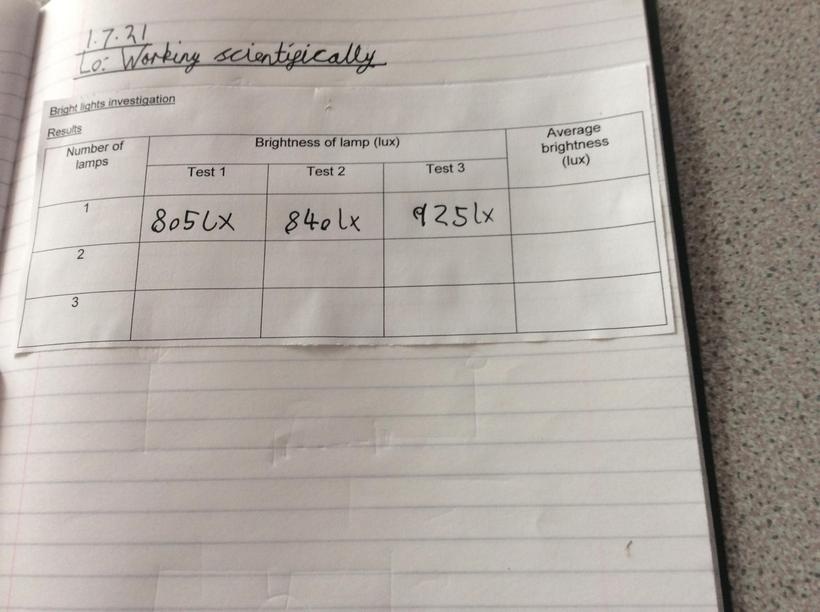 1.7.21
Lo: Working scientifically
Bright lights investigation
Results
Number of lamps
Brightness of lamp (lux)
Average brightness (lux)
Test 1 Test 2 Test 3
1 805lx 840lx 925lx
2
3